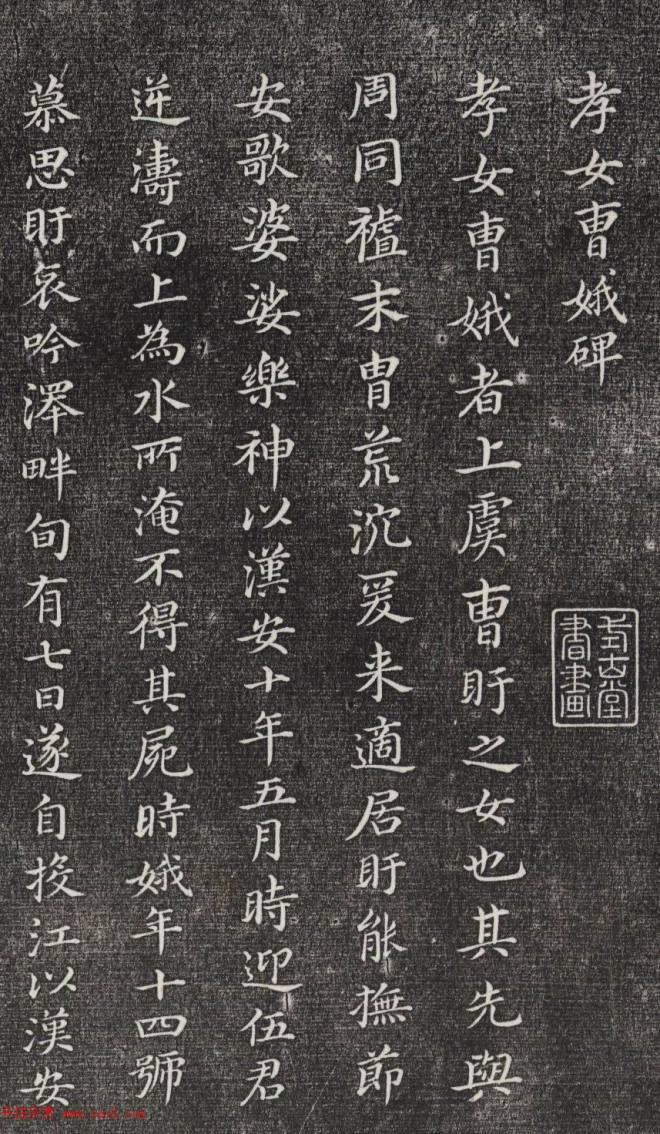 孝女曹娥碑
孝女曹娥者上虞曹盱之女也其先與
周同禮末胄荒沉爰来適居盱能撫節
安歌婆娑樂神以漢安十年五月時迎伍君
逆濤而上為水所淹不得其屍時娥年十四號
慕思盱哀吟澤畔旬有七日遂自投江以漢安